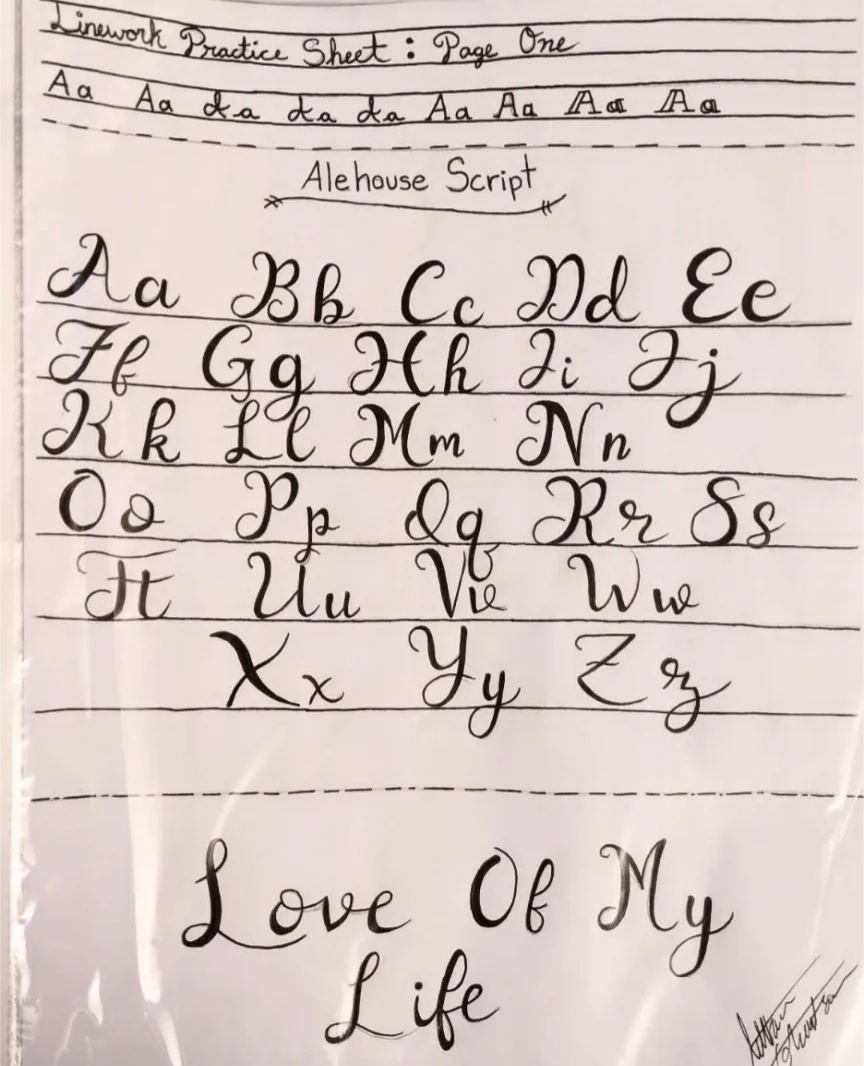 Linework Practice Sheet : Page One
Aa Aa Aa Aa Aa Aa Aa Aa Aa
Alehouse Script
Aa Bb Cc Dd Ee
Ff Gg Hh Ii Jj
Kk Ll Mm Nn
Oo Pp Qq Rr Ss
Tt Uu Vv Ww
Xx Yy Zz
Love Of My
Life